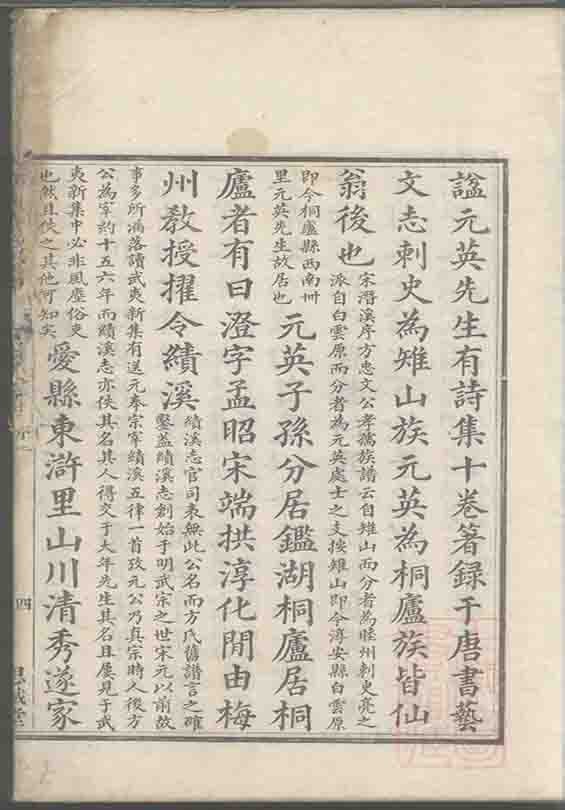 諡元英先生有詩集十卷著錄于唐書藝
文志刺史為雉山族元英為桐廬族皆仙
翁後也宋潛溪序方忠文公孝孺族譜云自雉山而分者為睦州刺史亮之
派自白雲原而分者為元英處士之支按雉山即今淳安縣白雲原
即今桐廬縣西南卅
里元英先生故居也元英子孫分居鑑湖桐廬居桐
廬者有曰澄字孟昭宋端拱淳化閒由梅
州教授擢令績溪績溪志官司表無此公名而方氏舊譜言之確
鑿蓋績溪志創始于明武宗之世宋元以前故
事多所漏落讀武夷新集有送元奉宗宰績溪五律一首攷元公乃真宗時人後方
公為宰約十五六年而績溪志亦佚其名其人得交于大年先生其名且屢見于武
夷新集中必非風塵俗吏
也然且佚之其他可知矣愛縣東滸里山川清秀遂家
四